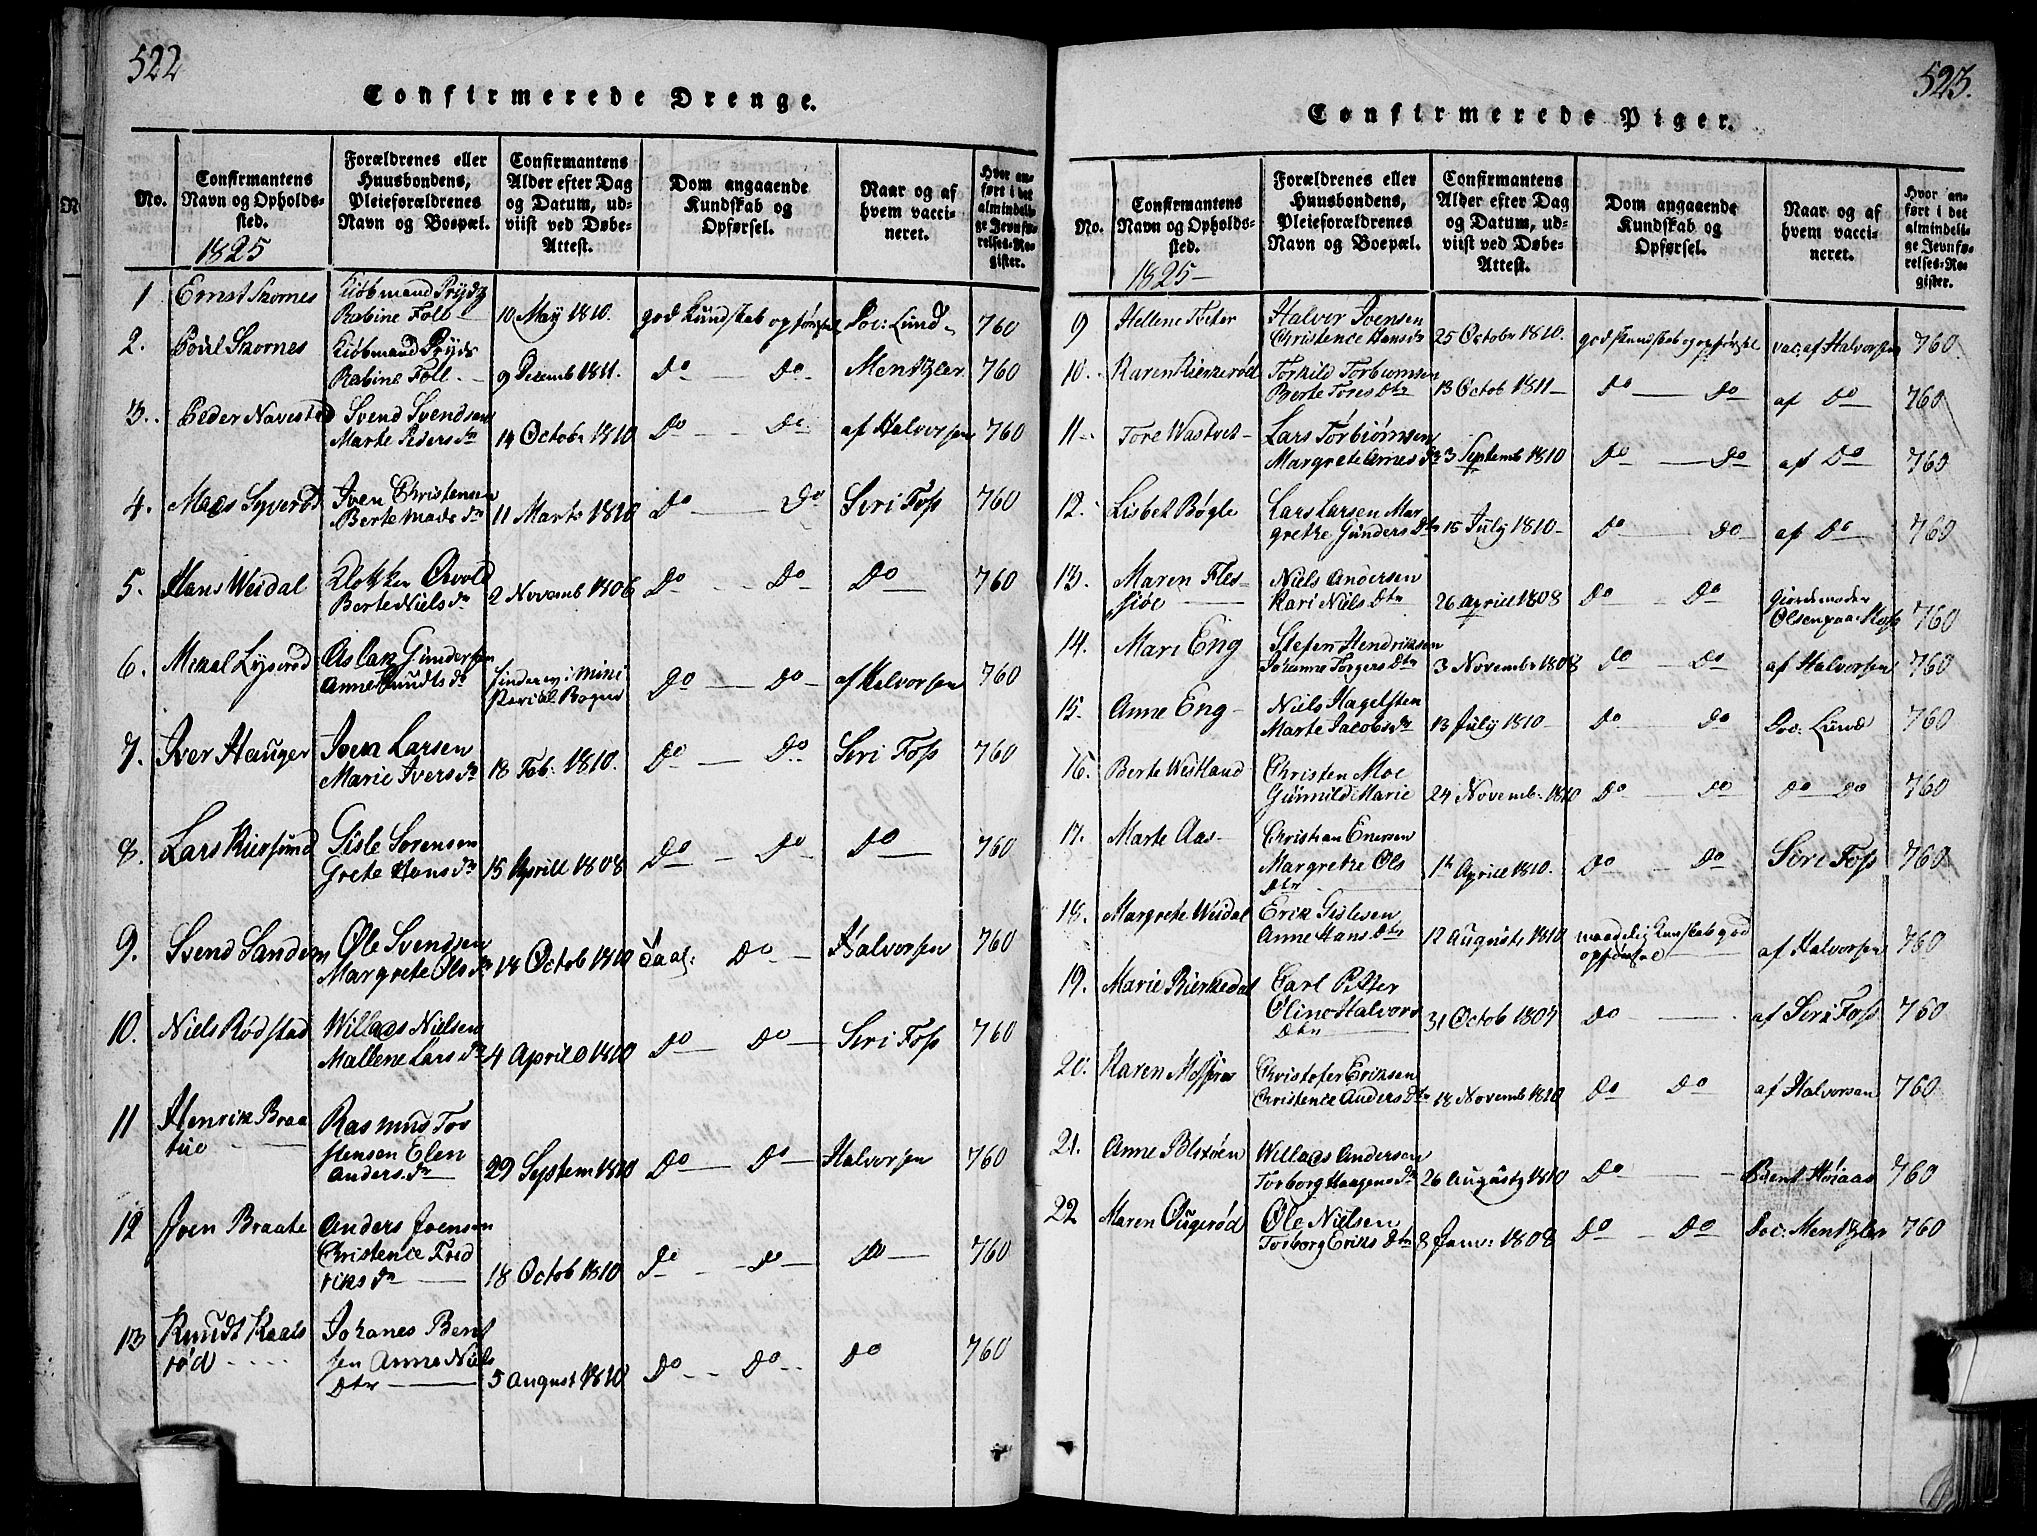 522
Confirmerede Drenge.
No.
Confirmantens Navn og Opholdssted.
Forældrenes eller Huusbondens, Pleieforældrenes Navn og Boepæl.
Confirmantens Alder efter Dag og Datum, udviist ved Døbe-Attest.
Dom angaaende Kundskab og Opførsel.
Naar og af hvem vaccineret.
Hvor anført i det almindelige Jevnførelses-Register.
1825
1 Ernst Skornes Kiöbmand Prydz
Rabine Föll 10 May 1810. god Kundskab opførsel Doc: Lund 760
2. Poul Skornes Kiöbmand Pryds
Rabine Föll 9 Decemb 1811. Do Do Mentzler 760
3. Peder Navestad Svend Svendsen
Marte Peders Dr 14 Octobr 1810 Do Do af Halvorsen 760
4. Maes Syverød Iven Christensen
Berte Mads Dr 11 Marts 1810 Do Do Siri Foss 760
5. Hans Wesdal Klokker Osvold
Berte Niels Dr 2 Novemb 1806 Do Do Do 760
6. Mikal Lysrød Aslak Gundersen
Anne Knudts Dr findes ey i mini
steriel Bogen Do Do af Halvorsen 760
7. Iver Hauger Iven Larsen
Marie Ivers Dr 18 Feb: 1810. Do Do Siri Foss 760
8. Lars Kiersund Gisle Sorensen
Grete Hans Dr 15 Aprill 1808 Do Do Do 760
9. Svend Sandem Ole Svendsen
Margrete Ols Dr 18 Octob 1810 Do Halvorsen 760
10. Niels Rødstad Willads Nielsen
Mallene Lars Dr 4 April 1810 Do Do Siri Foss 760
11 Henrik Braa
tue Rasmus Tor
stensen Elen
Anders Dr 29 Septem 1810 Do Do Halvorsen 760
12 Iven Braate Anders Ivensen
Christence Fred
riks Dr 18 Octob 1810 Do Do Do 760
13 Knudt Kaals
rød Johanes Bent
sen Anne Niels
Dtr 5 August 1810 Do Do Do 760
523.
Confirmerede Piger.
No.
Confirmantens Navn og Opholdssted.
Forældrenes eller Huusbondens, Pleieforældrenes Navn og Boepæl.
Confirmantens Alder efter Dag og Datum, udviist ved Døbe-Attest.
Dom angaaende Kundskab og Opførsel.
Naar og af hvem vaccineret.
Hvor anført i det almindelige Jevnførelses-Register.
1825
9 Hellene Tveter Halvor Ivensen
Christence Hans Dr 25 Octobr 1810. god Kundskab og opførsel vac: af Halvorsen 760
10. Karen Torkild Torbiornsen
Berte Tores Dtr 13 Octob 1811 Do Do af Do 760
11 Tore Wastvet Lars Torbiørnsen
Margrete Arnes Dr 3 Septemb 1810 Do Do af Do 760
12. Lisbet Bøgle Lars Larsen Mar
grethe Gunders Dtr 15 July 1810 Do Do af Do 760
13. Maren Fles
siøe Niels Andersen
Kari Niels Dtr 26 Aprill 1808 Do Do Giordemoder
Olsen paa Moss 760
14. Mari Eng Stefen Hendriksen
Johanne Torgers Dtr 3 Novembr 1808 Do Do af Halvorsen 760
15. Anne Eng Niels Hagelsten
Marte Jacobs Dr 13 July 1810 Do Do Doc: Lund 760
16. Berte Westland Christen Moe
Gunnild Marie 24 Novemb. 1810 Do Do Do Do 760
17. Marte Aas Christian Enersen
Margrethe Ols
Dtr Aprill 1810. Do Do Siri Foss 760
18. Margrete Wesdal Erik Gislesen
Anne Hans Dtr 12 Augusts 1810 maadelig Kunskab god
opførsel af Halvorsen 760
19. Marie Bierkedal Carl Petter
Oline Halvors
Dtr 31 Octob 1807 Do af Siri Foss 760
20. Karen Christofer Eriksen
Christence Anders Dtr 18 Novemb 1810 Do Do af Halvorsen 760
21. Anne Blixøen Willads Andersen
Torborg Haagens Dr 26 Augusty 1810 Do Bent Høiaas 760
22 Maren Ougerød Ole Nielsen
Torborg Eriks Dtr 8 Janv: 1808 Do Do Doc: Mentzler 760